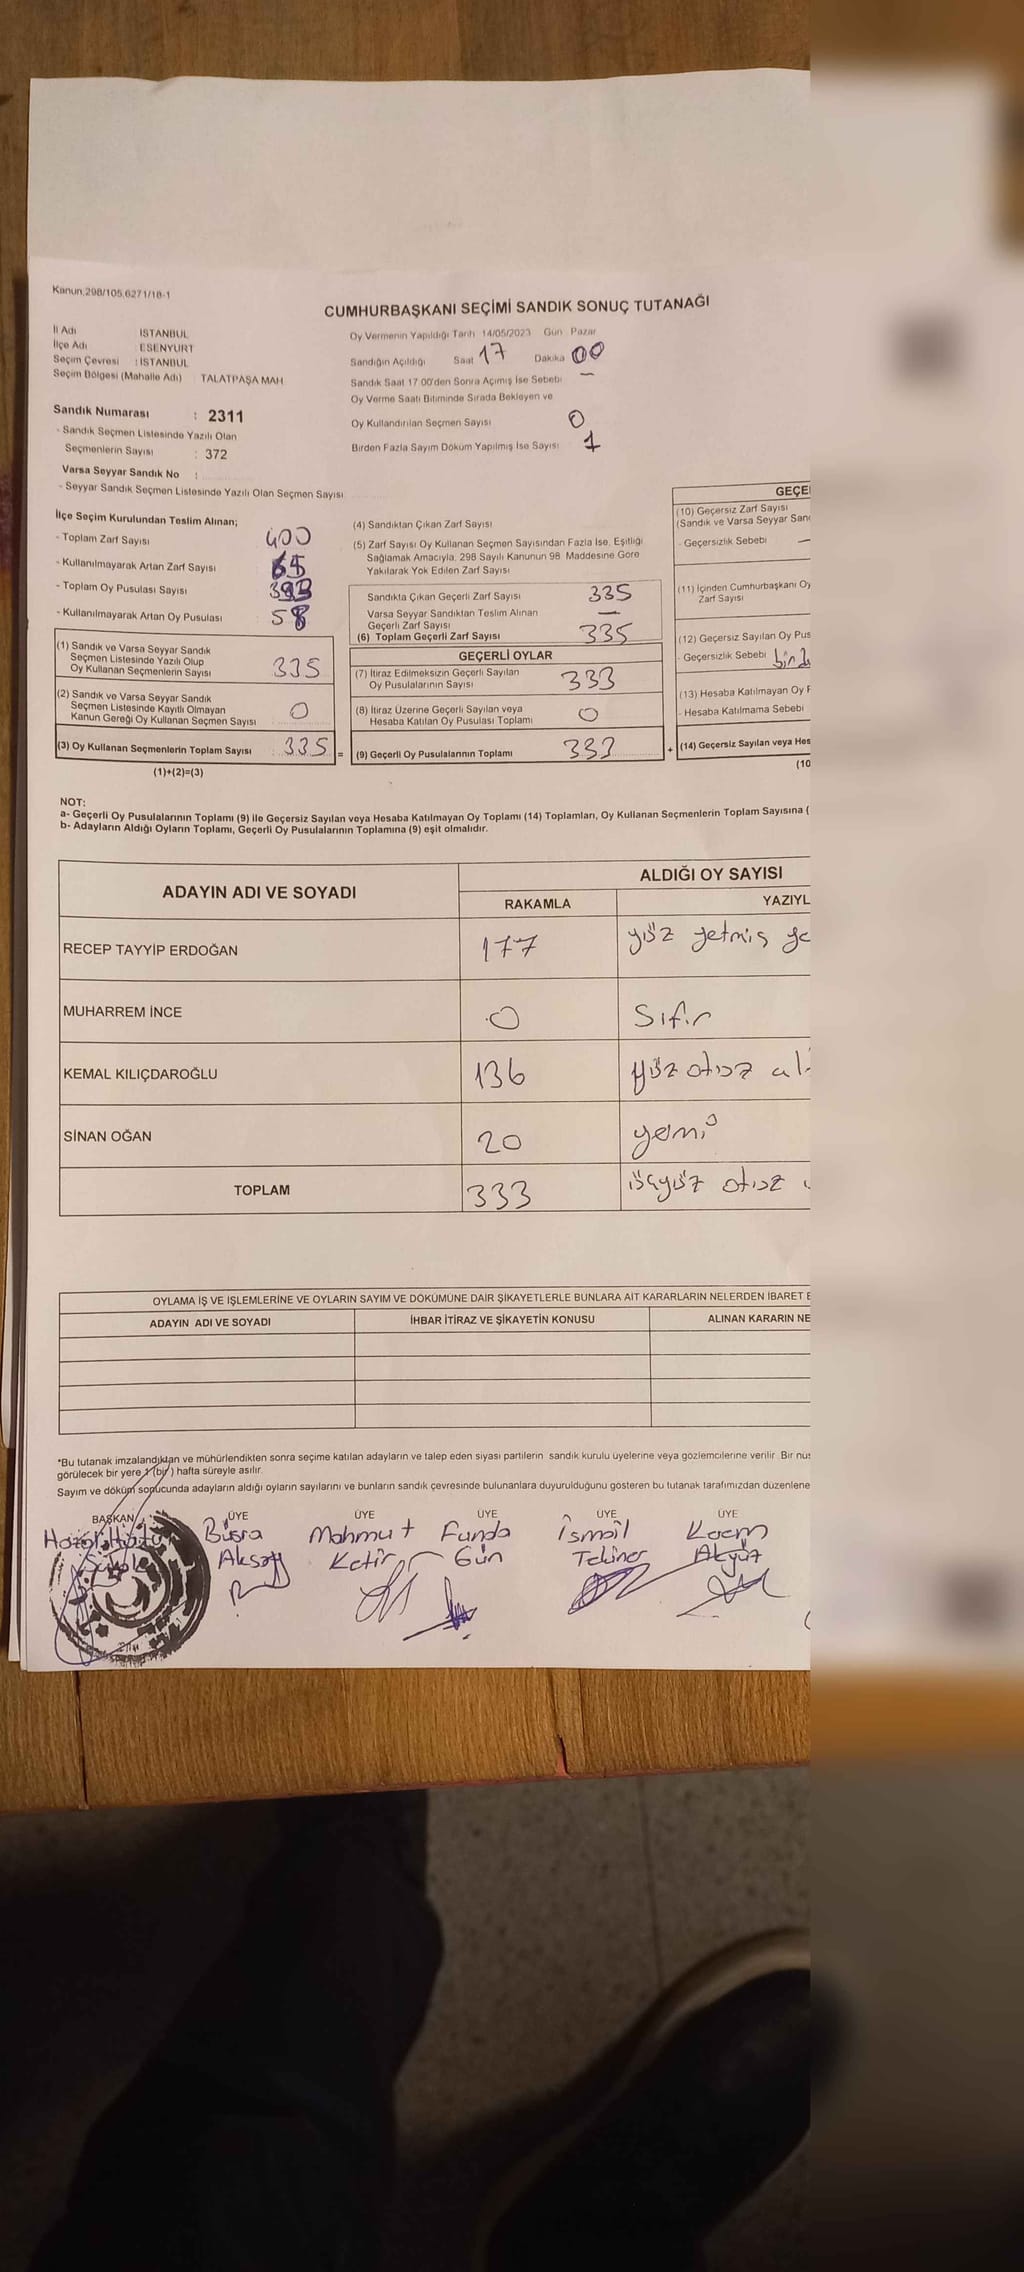 Kanun,298/105,6271/18-1
CUMHURBAŞKANI SEÇİMİ SANDIK SONUÇ TUTANAĞI
İl Adı İSTANBUL
İlçe Adı : ESENYURT
Seçim Çevresi : İSTANBUL
Seçim Bölgesi (Mahalle Adı) : TALATPAŞA MAH
Oy Vermenin Yapıldığı Tarih 14/05/2023 Gün Pazar
Sandığın Açıldığı Saat 17 Dakika 00
Sandık Saat 17 00'den Sonra Açımış İse Sebebi —
Oy Verme Saati Bitiminde Sırada Bekleyen ve
Oy Kullandırılan Seçmen Sayısı 0
Birden Fazla Sayım Döküm Yapılmış İse Sayısı 1
Sandık Numarası : 2311
- Sandık Seçmen Listesinde Yazılı Olan
Seçmenlerin Sayısı : 372
Varsa Seyyar Sandık No :
- Seyyar Sandık Seçmen Listesinde Yazılı Olan Seçmen Sayısı
İlçe Seçim Kurulundan Teslim Alınan;
- Toplam Zarf Sayısı 400
- Kullanılmayarak Artan Zarf Sayısı 65
- Toplam Oy Pusulası Sayısı 393
- Kullanılmayarak Artan Oy Pusulası 58
(1) Sandık ve Varsa Seyyar Sandık
Seçmen Listesinde Yazılı Olup
Oy Kullanan Seçmenlerin Sayısı 335
(2) Sandık ve Varsa Seyyar Sandık
Seçmen Listesinde Kayıtlı Olmayan
Kanun Gereği Oy Kullanan Seçmen Sayısı 0
(3) Oy Kullanan Seçmenlerin Toplam Sayısı 335 =
(1)+(2)=(3)
(4) Sandıktan Çıkan Zarf Sayısı
(5) Zarf Sayısı Oy Kullanan Seçmen Sayısından Fazla İse, Eşitliği
Sağlamak Amacıyla, 298 Sayılı Kanunun 98 Maddesine Göre
Yakılarak Yok Edilen Zarf Sayısı
Sandıkta Çıkan Geçerli Zarf Sayısı 335
Varsa Seyyar Sandıktan Teslim Alınan
Geçerli Zarf Sayısı —
(6) Toplam Geçerli Zarf Sayısı 335
GEÇERLİ OYLAR
(7) İtiraz Edilmeksizin Geçerli Sayılan
Oy Pusulalarının Sayısı 333
(8) İtiraz Üzerine Geçerli Sayılan veya
Hesaba Katılan Oy Pusulası Toplamı 0
(9) Geçerli Oy Pusulalarının Toplamı 333 +
GEÇE
(10) Geçersiz Zarf Sayısı
(Sandık ve Varsa Seyyar San
- Geçersizlik Sebebi —
(11) İçinden Cumhurbaşkanı Oy
Zarf Sayısı
(12) Geçersiz Sayılan Oy Pus
- Geçersizlik Sebebi
(13) Hesaba Katılmayan Oy P
- Hesaba Katılmama Sebebi
(14) Geçersiz Sayılan veya Hes
(10
NOT:
a- Geçerli Oy Pusulalarının Toplamı (9) ile Geçersiz Sayılan veya Hesaba Katılmayan Oy Toplamı (14) Toplamları, Oy Kullanan Seçmenlerin Toplam Sayısına (
b- Adayların Aldığı Oyların Toplamı, Geçerli Oy Pusulalarının Toplamına (9) eşit olmalıdır.
ADAYIN ADI VE SOYADI ALDIĞI OY SAYISI
RAKAMLA YAZIYL
RECEP TAYYİP ERDOĞAN 177 yüz yetmiş ye
MUHARREM İNCE 0 Sıfır
KEMAL KILIÇDAROĞLU 136 yüz otuz al
SİNAN OĞAN 20 yirmi
TOPLAM 333 üçyüz otuz
OYLAMA İŞ VE İŞLEMLERİNE VE OYLARIN SAYIM VE DÖKÜMÜNE DAİR ŞİKAYETLERLE BUNLARA AİT KARARLARIN NELERDEN İBARET
ADAYIN ADI VE SOYADI İHBAR İTİRAZ VE ŞİKAYETİN KONUSU ALINAN KARARIN NE
*Bu tutanak imzalandıktan ve mühürlendikten sonra seçime katılan adayların ve talep eden siyasi partilerin sandık kurulu üyelerine veya gözlemcilerine verilir. Bir nüs
görülecek bir yere 1 (bir) hafta süreyle asılır.
Sayım ve döküm sonucunda adayların aldığı oyların sayılarını ve bunların sandık çevresinde bulunanlara duyurulduğunu gösteren bu tutanak tarafımızdan düzenlene
BAŞKAN ÜYE ÜYE ÜYE ÜYE ÜYE
Büşra Mahmut Funda İsmail Kaem
Aksoy Ketir Gün Tekiner Akyüz